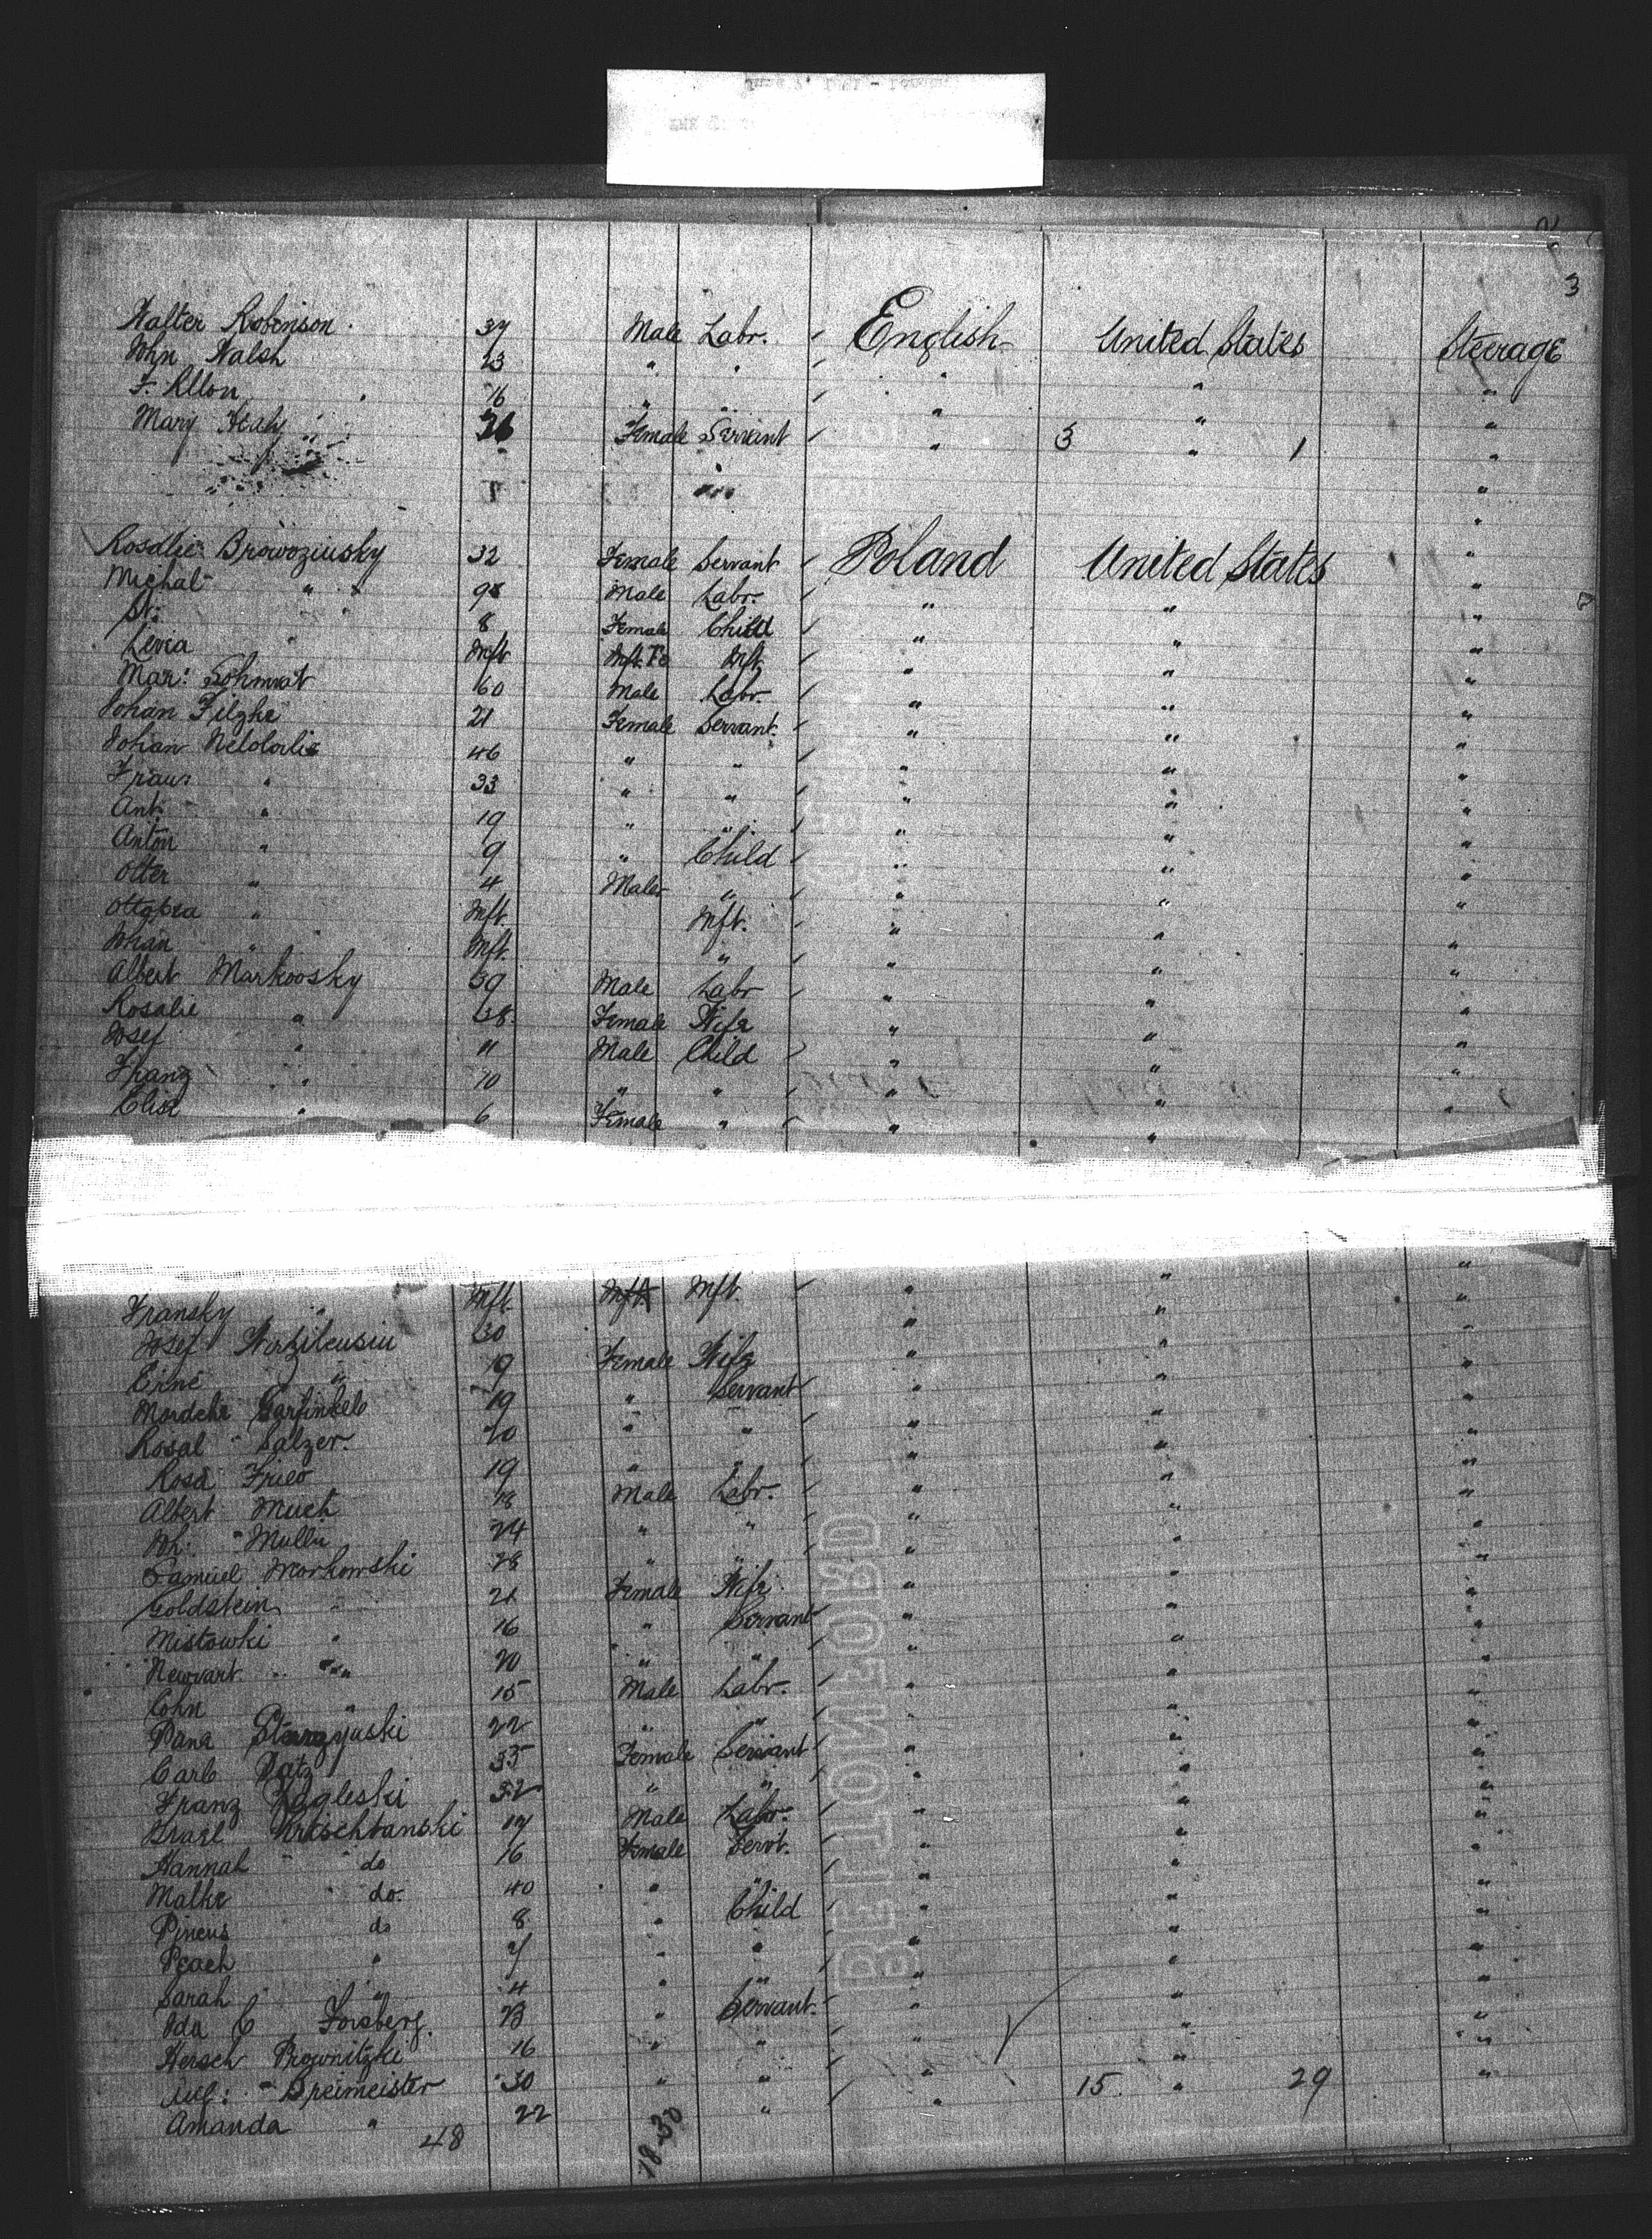 3
Walter Robinson 37 Male Labr. English United States Steerage
John Walsh 23 " " " " "
F. Allon 16 " " " " "
Mary Healy Female Servant " 3 " 1 "
Rosalie Browoziusky 32 Female Servant Poland United States "
Michal " Male Labr. " " "
8 Female Child " " "
Inft Inft " " "
Mar: Schmat 60 Male Labr. " " "
Johan Filzke 21 Female Servant. " " "
Johan 46 " " " " "
Franz " 33 " " " " "
Ant. " 19 " " " " "
Anton " 9 " Child " " "
Otter " 4 Male " " " "
" Inft. Inft. " " "
Johan " Inft. " " " "
Albert Markoosky 39 Male Labr " " "
Rosalie " 38 Female Wife " " "
Josef " 11 Male Child " " "
Franz " 10 " " " " "
Elise " 6 Female " " " "
Fransky " Inft. Inft. " " "
Josef 30 " " "
Erne " 19 Female Wife " " "
Mordche Garfinkel 19 " Servant " " "
Rosal Salzer. 20 " " " " "
Rosa Fried 19 " " " " "
Albert Much 18 Male Labr. " " "
Joh: Mullu 24 " " " " "
Samuel Morkowski 28 " " " " "
Goldstein " 21 Female Wife " " "
Mistowki " 16 " Servant " " "
Newvart " 20 " " " " "
Cohn " 15 Male Labr. " " "
22 " " " " "
Carl Patz 35 Female Servant " " "
Franz Zagleski 32 " " " " "
Israel Krischtanski 17 Male Labr. " " "
Hannah do 16 Female Servt. " " "
Malke do. 40 " " " " "
Pincus do 8 " Child " " "
Peach " 7 " " " " "
Sarah " 4 " " " " "
Ida C Forsberg. 23 " Servant. " " "
Hersch Prownitzki 16 " " " " "
Aug: Breimeister 30 " " " 15 " 29 "
Amanda " 22 " "
48 18-30
BETTONFORD